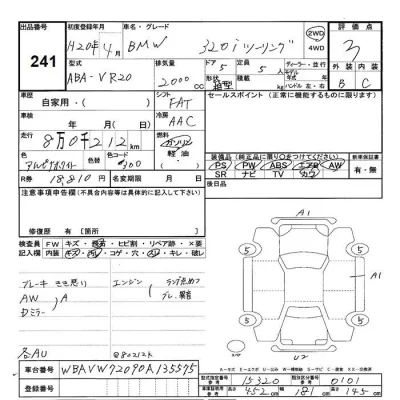 出品番号 初度登録年月 車名・グレード 2WD 4WD 評価点
241 H20年4月 BMW 320iツーリング 3
型式 排気量 ドア 定員 ディーラー・並行 外装 内装
ABA-VR20 2000 cc 5 5人 モデル 年 ハンドル 左・右 B C
車歴 自家用・( ) シフト FAT セールスポイント(正常に機能するものに限ります)
車検 年 月 日 冷房 AAC
走行 8万0千212km 燃料 ガソリン 軽油 ・( )
外色 アルピンホワイト 色替 色コード 300 装備品(純正品に限り○をつけてください) 新車保証書
PS PW ABS エアB AW 有・無
SR ナビ TV カワ
R券 18,810円 名変期限 月 日 後日品
注意事項申告欄(不具合内容等は具体的に記入して下さい)
修復歴 有 [箇所 ]
検査員 FW キズ・飛石・ヒビ割・リペア跡・×要
記入欄 内装 キズ・汚・コゲ・穴・スレ・キレ・破レ
ブレーキ
エンジン ランプ点めつ
AW A
ミラー
各AU
A1
5 5
A1
5 5
U2
車台番号 WBAVW72090A135595
登録番号
型式指定番号 参考 15320 類別区分番号 参考 0101
長さ 参考 452cm 幅 181cm 高さ 145cm